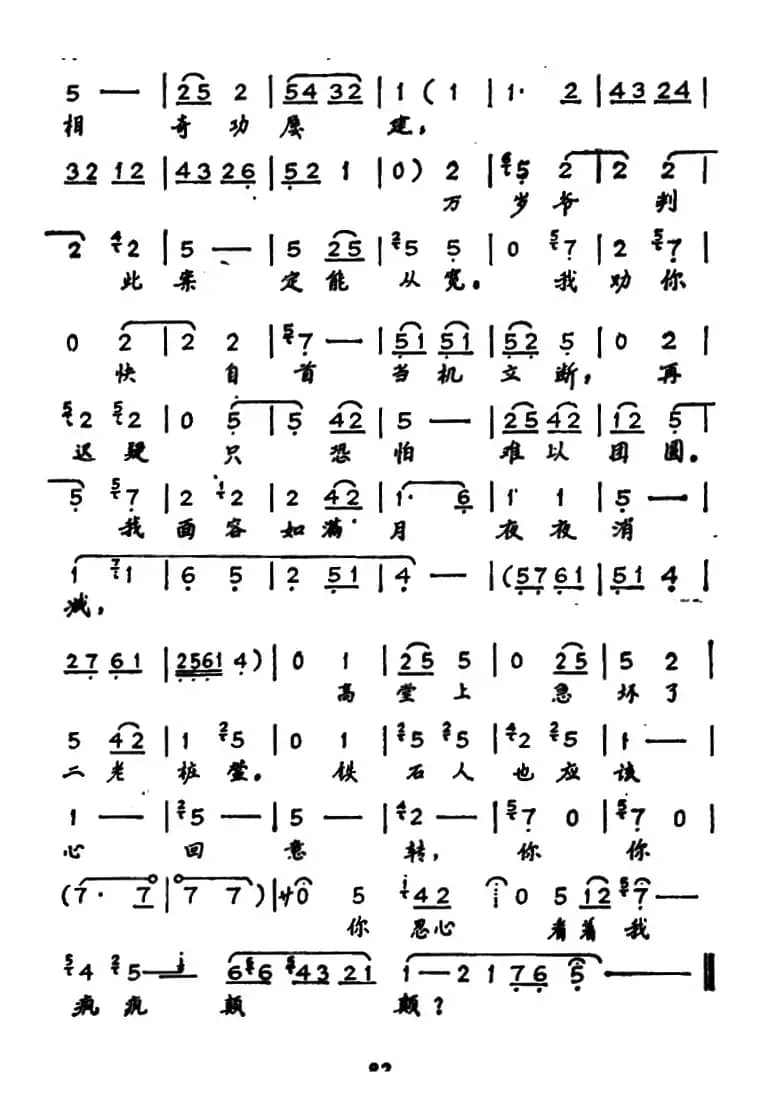 5 — | 25 2 | 54 32 | 1 ( 1 | 1· 2 | 43 24 |
相 奇功屡 建,
32 12 | 43 26 | 52 1 | 0 ) 2 | 5 2 | 2 2 |
万 岁爷 判
2 2 | 5 — | 5 25 | 5 5 | 0 7 | 2 7 |
此案 定能 从宽。 我劝你
0 2 | 2 2 | 7 — | 51 51 | 52 5 | 0 2 |
快 自首 当机 立断, 再
2 2 | 0 5 | 5 42 | 5 — | 25 42 | 12 5 |
迟疑 只 恐怕 难以团圆。
5 7 | 2 2 | 2 42 | 1· 6 | 1 1 | 5 — |
我面容如满 月 夜夜消
1 1 | 6 5 | 2 51 | 4 — | (57 61 | 51 4 |
减,
27 61 | 2561 4 ) | 0 1 | 25 5 | 0 25 | 5 2 |
高堂上 急坏了
5 42 | 1 5 | 0 1 | 5 5 | 2 5 | 1 — |
二老桩萱。 铁石人也应该
1 — | 5 — | 5 — | 2 — | 7 0 | 7 0 |
心 回 意 转, 你 你
(7· 7 | 7 7 ) | 廿0 5 42 0 5 12 7 —
你 忍心 看着我
4 5 — 6 6 43 21 1 — 2 1 76 5 —
疯疯 颠 颠?